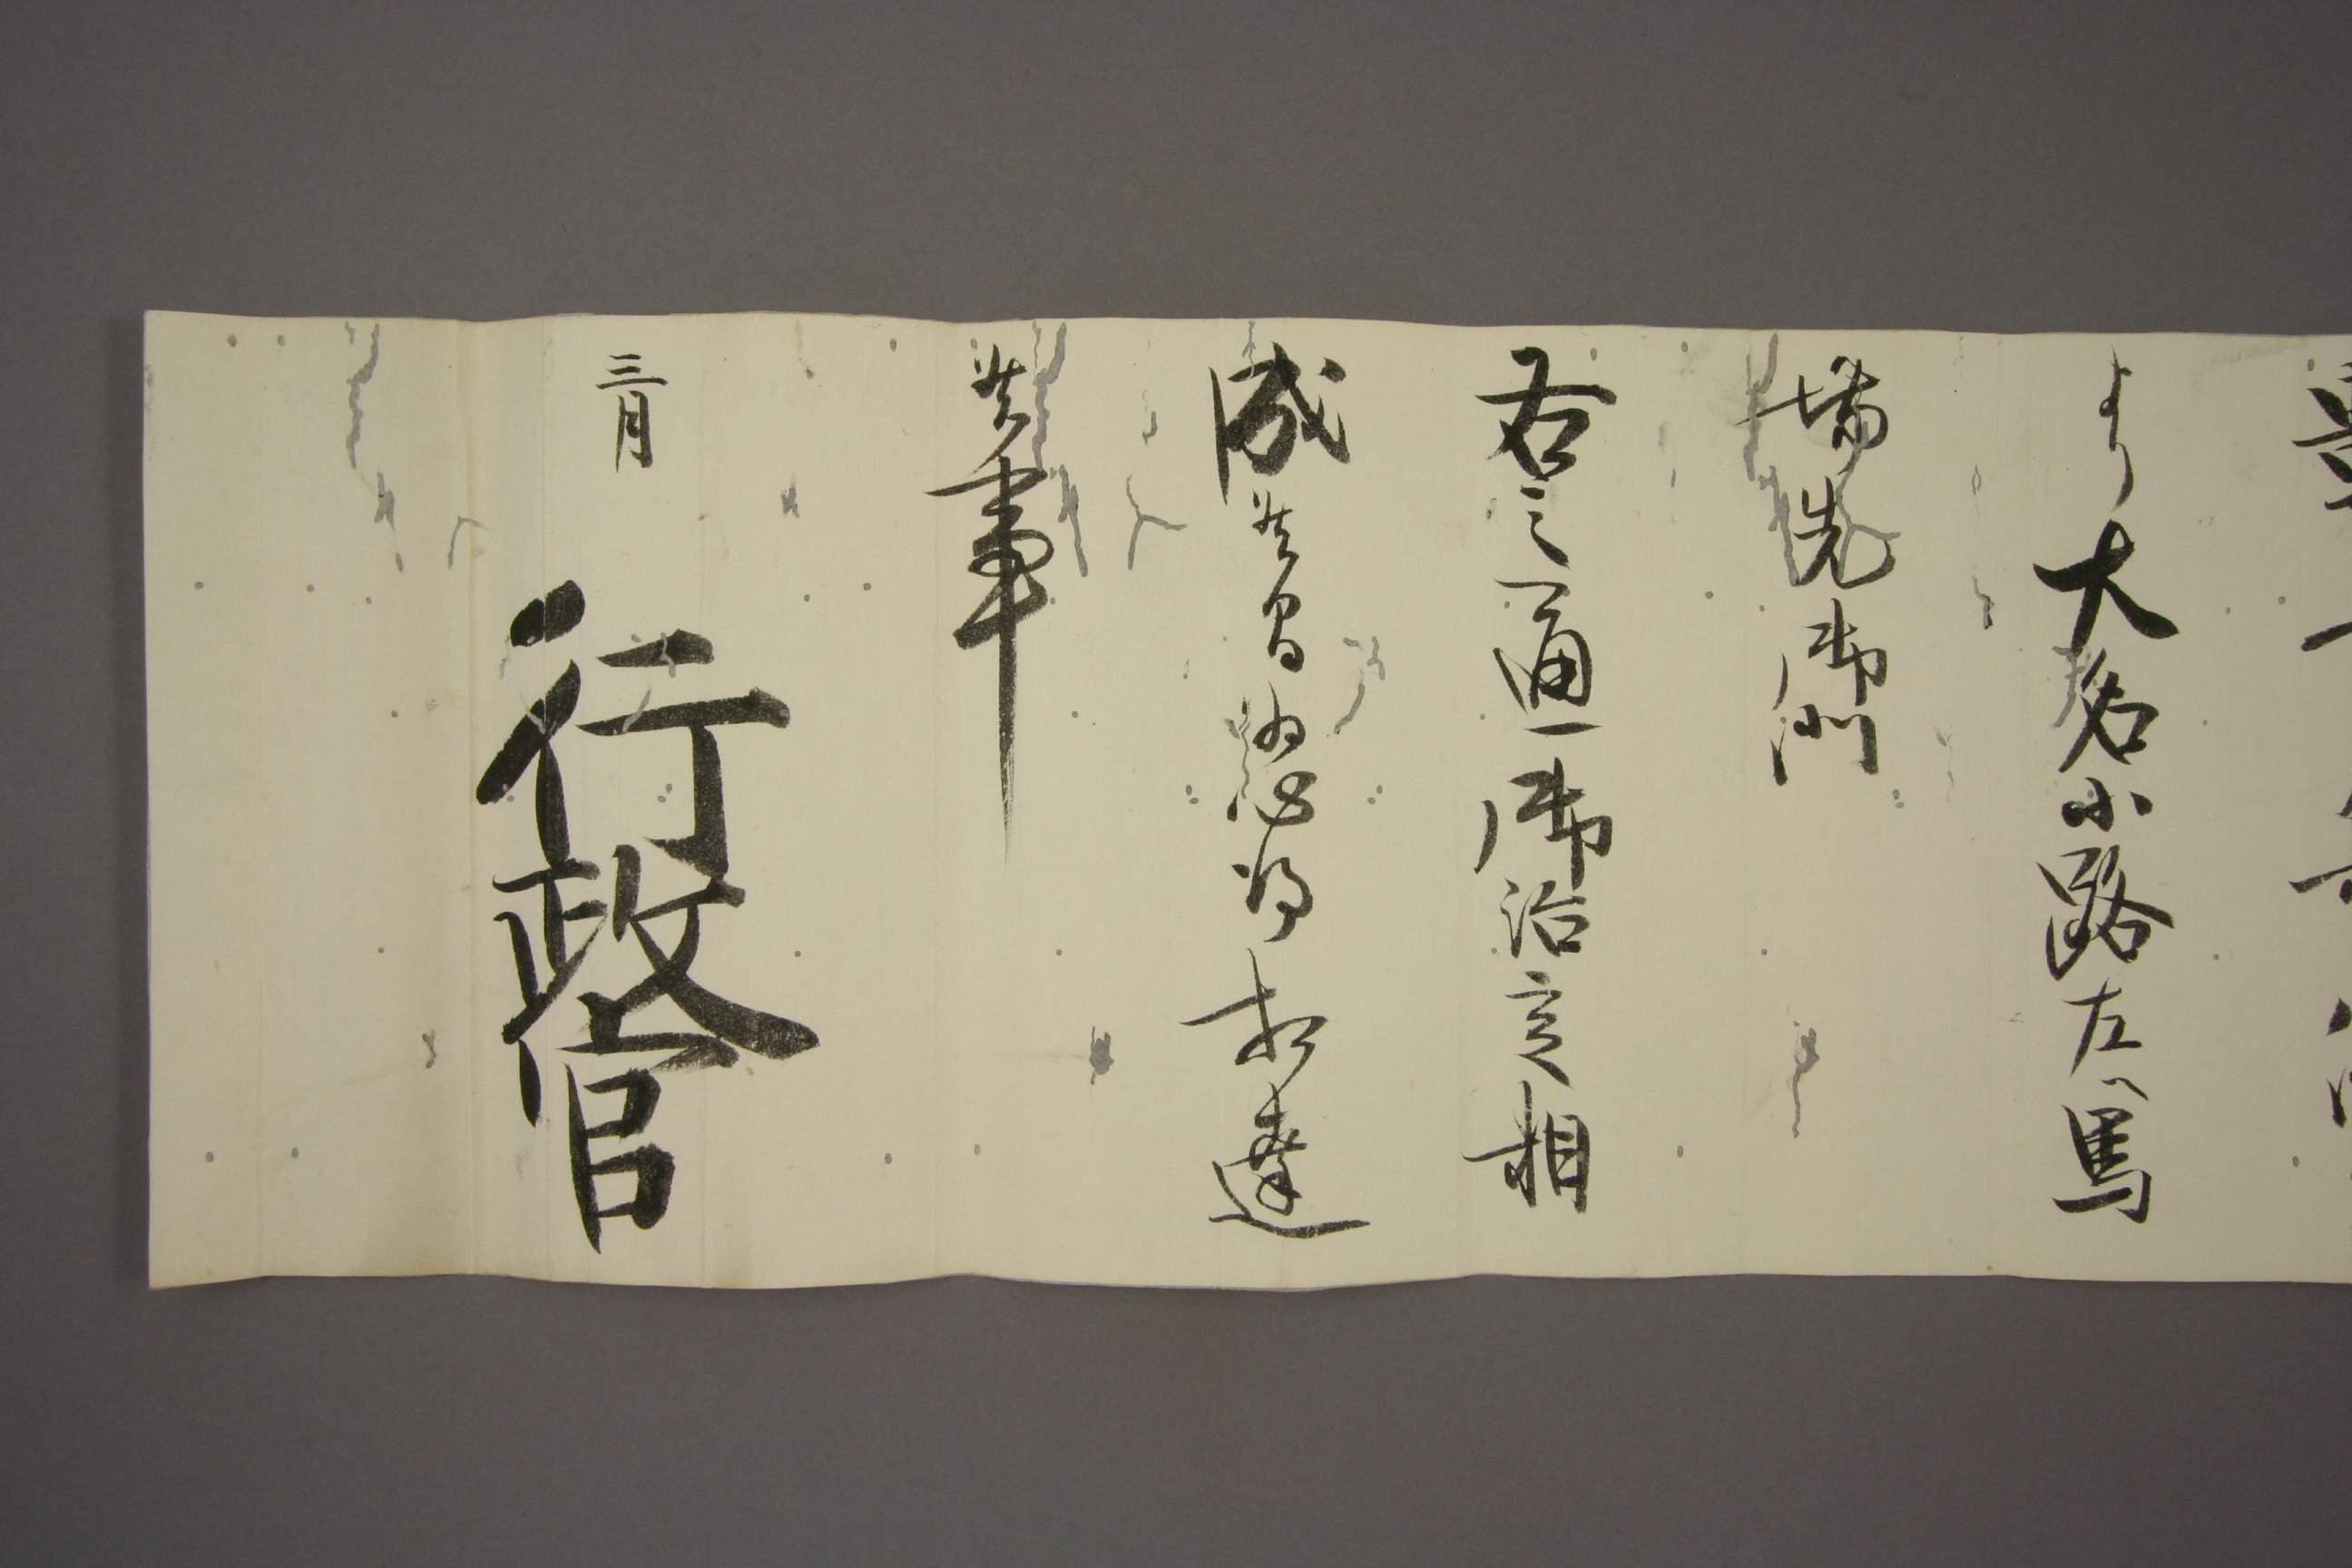 より大名小路左ヘ馬
場先御門
右之通御治定相
成候間為心得相達
候事
三月
行政官